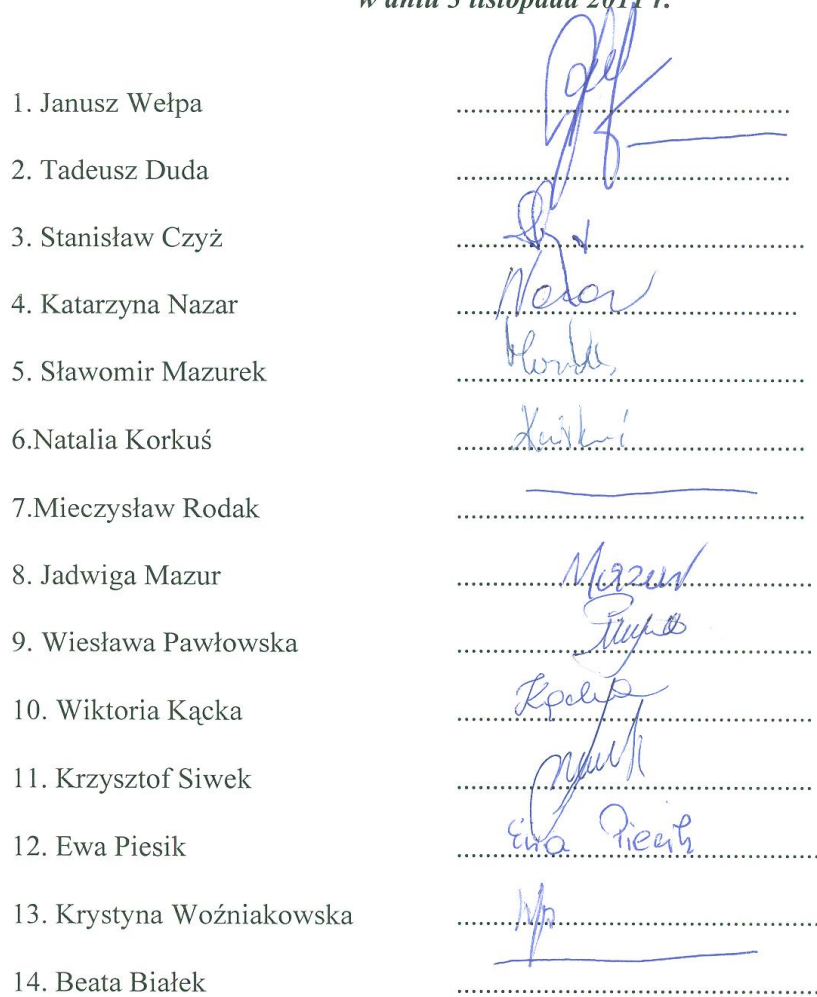 w dniu 3 listopada 2011 r.
1. Janusz Wełpa
2. Tadeusz Duda
3. Stanisław Czyż
4. Katarzyna Nazar Nazar
5. Sławomir Mazurek
6.Natalia Korkuś
7.Mieczysław Rodak
8. Jadwiga Mazur Mazur
9. Wiesława Pawłowska
10. Wiktoria Kącka Kącka
11. Krzysztof Siwek
12. Ewa Piesik Ewa Piesik
13. Krystyna Woźniakowska
14. Beata Białek